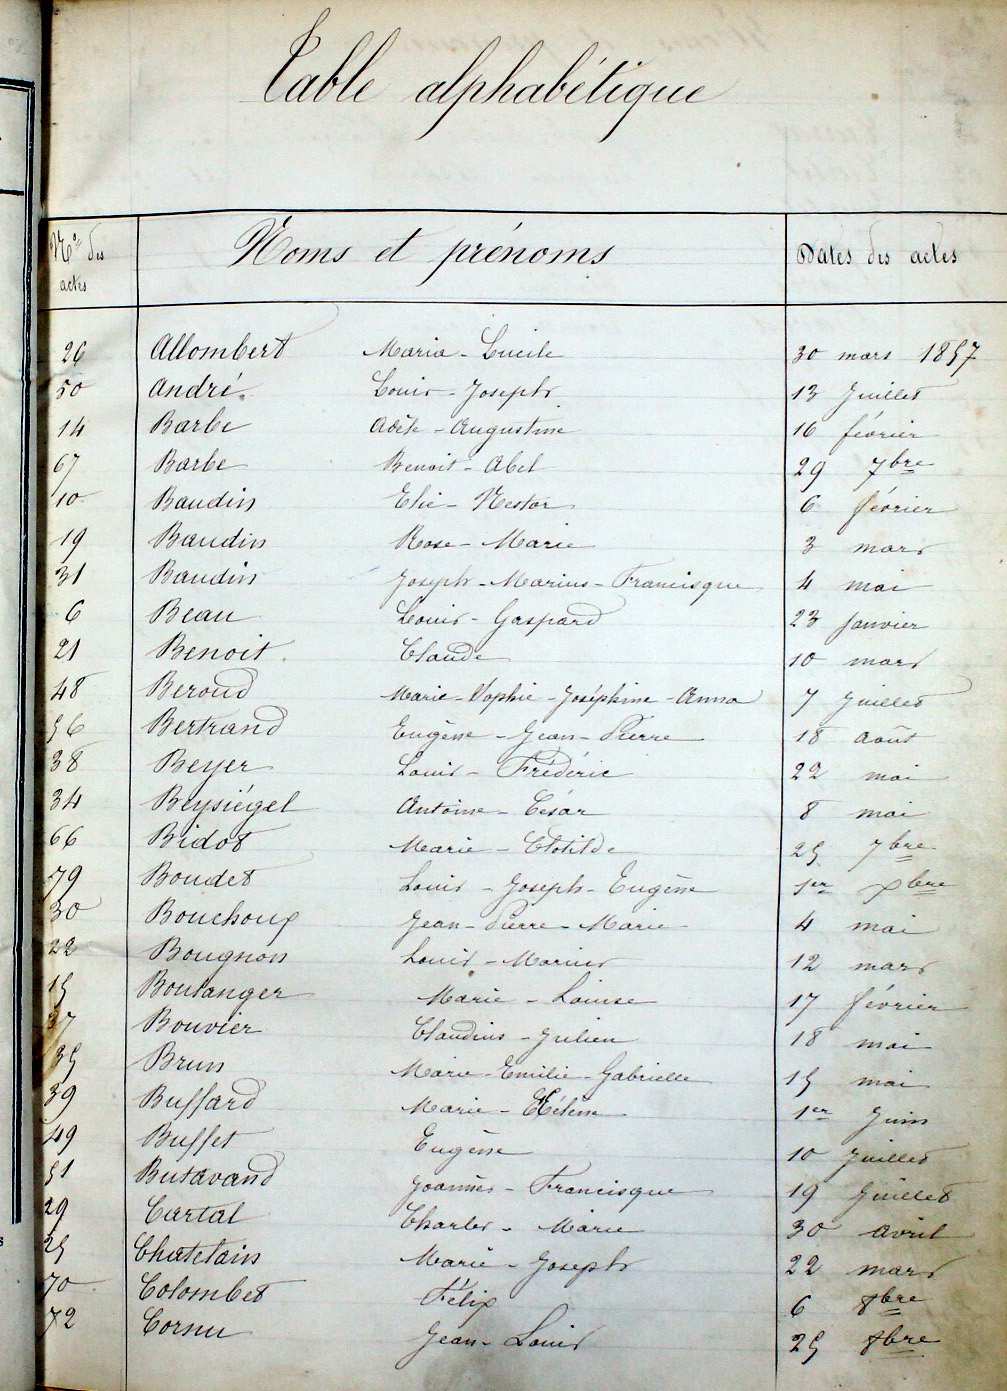 Table alphabétique
Nos des actes Noms et prénoms Dates des actes
26 Allombert Maria-Lucile 30 mars 1857
50 André Louis-Joseph 13 Juillet
14 Barbe Adèle-Augustine 16 février
67 Barbe Benoit-Abel 29 7bre
10 Baudin Elie-Nestor 6 février
19 Baudin Rose-Marie 3 mars
31 Baudin Joseph-Marius-Francisque 4 mai
6 Beau Louis-Gaspard 23 janvier
21 Benoit Claude 10 mars
48 Beroud Marie-Sophie-Joséphine-Anna 7 Juillet
56 Bertrand Eugène-Jean-Pierre 18 août
38 Beyer Louis-Frédéric 22 mai
34 Beysiégel Antoine-César 8 mai
66 Bidot Marie-Clotilde 25 7bre
79 Boudet Louis-Joseph-Eugène 1er Xbre
30 Bouchoux Jean-Pierre-Marie 4 mai
22 Bougnon Louis-Marius 12 mars
15 Boulanger Marie-Louise 17 février
37 Bouvier Claudius-Julien 18 mai
35 Brun Marie-Emilie-Gabrielle 15 mai
39 Buffard Marie-Hélène 1er Juin
49 Buffet Eugène 10 Juillet
51 Butavand Joannès-Francisque 19 Juillet
29 Cartal Charles-Marie 30 avril
25 Chatelain Marie-Joseph 22 mars
70 Colombet Félix 6 8bre
72 Cornu Jean-Louis 25 8bre